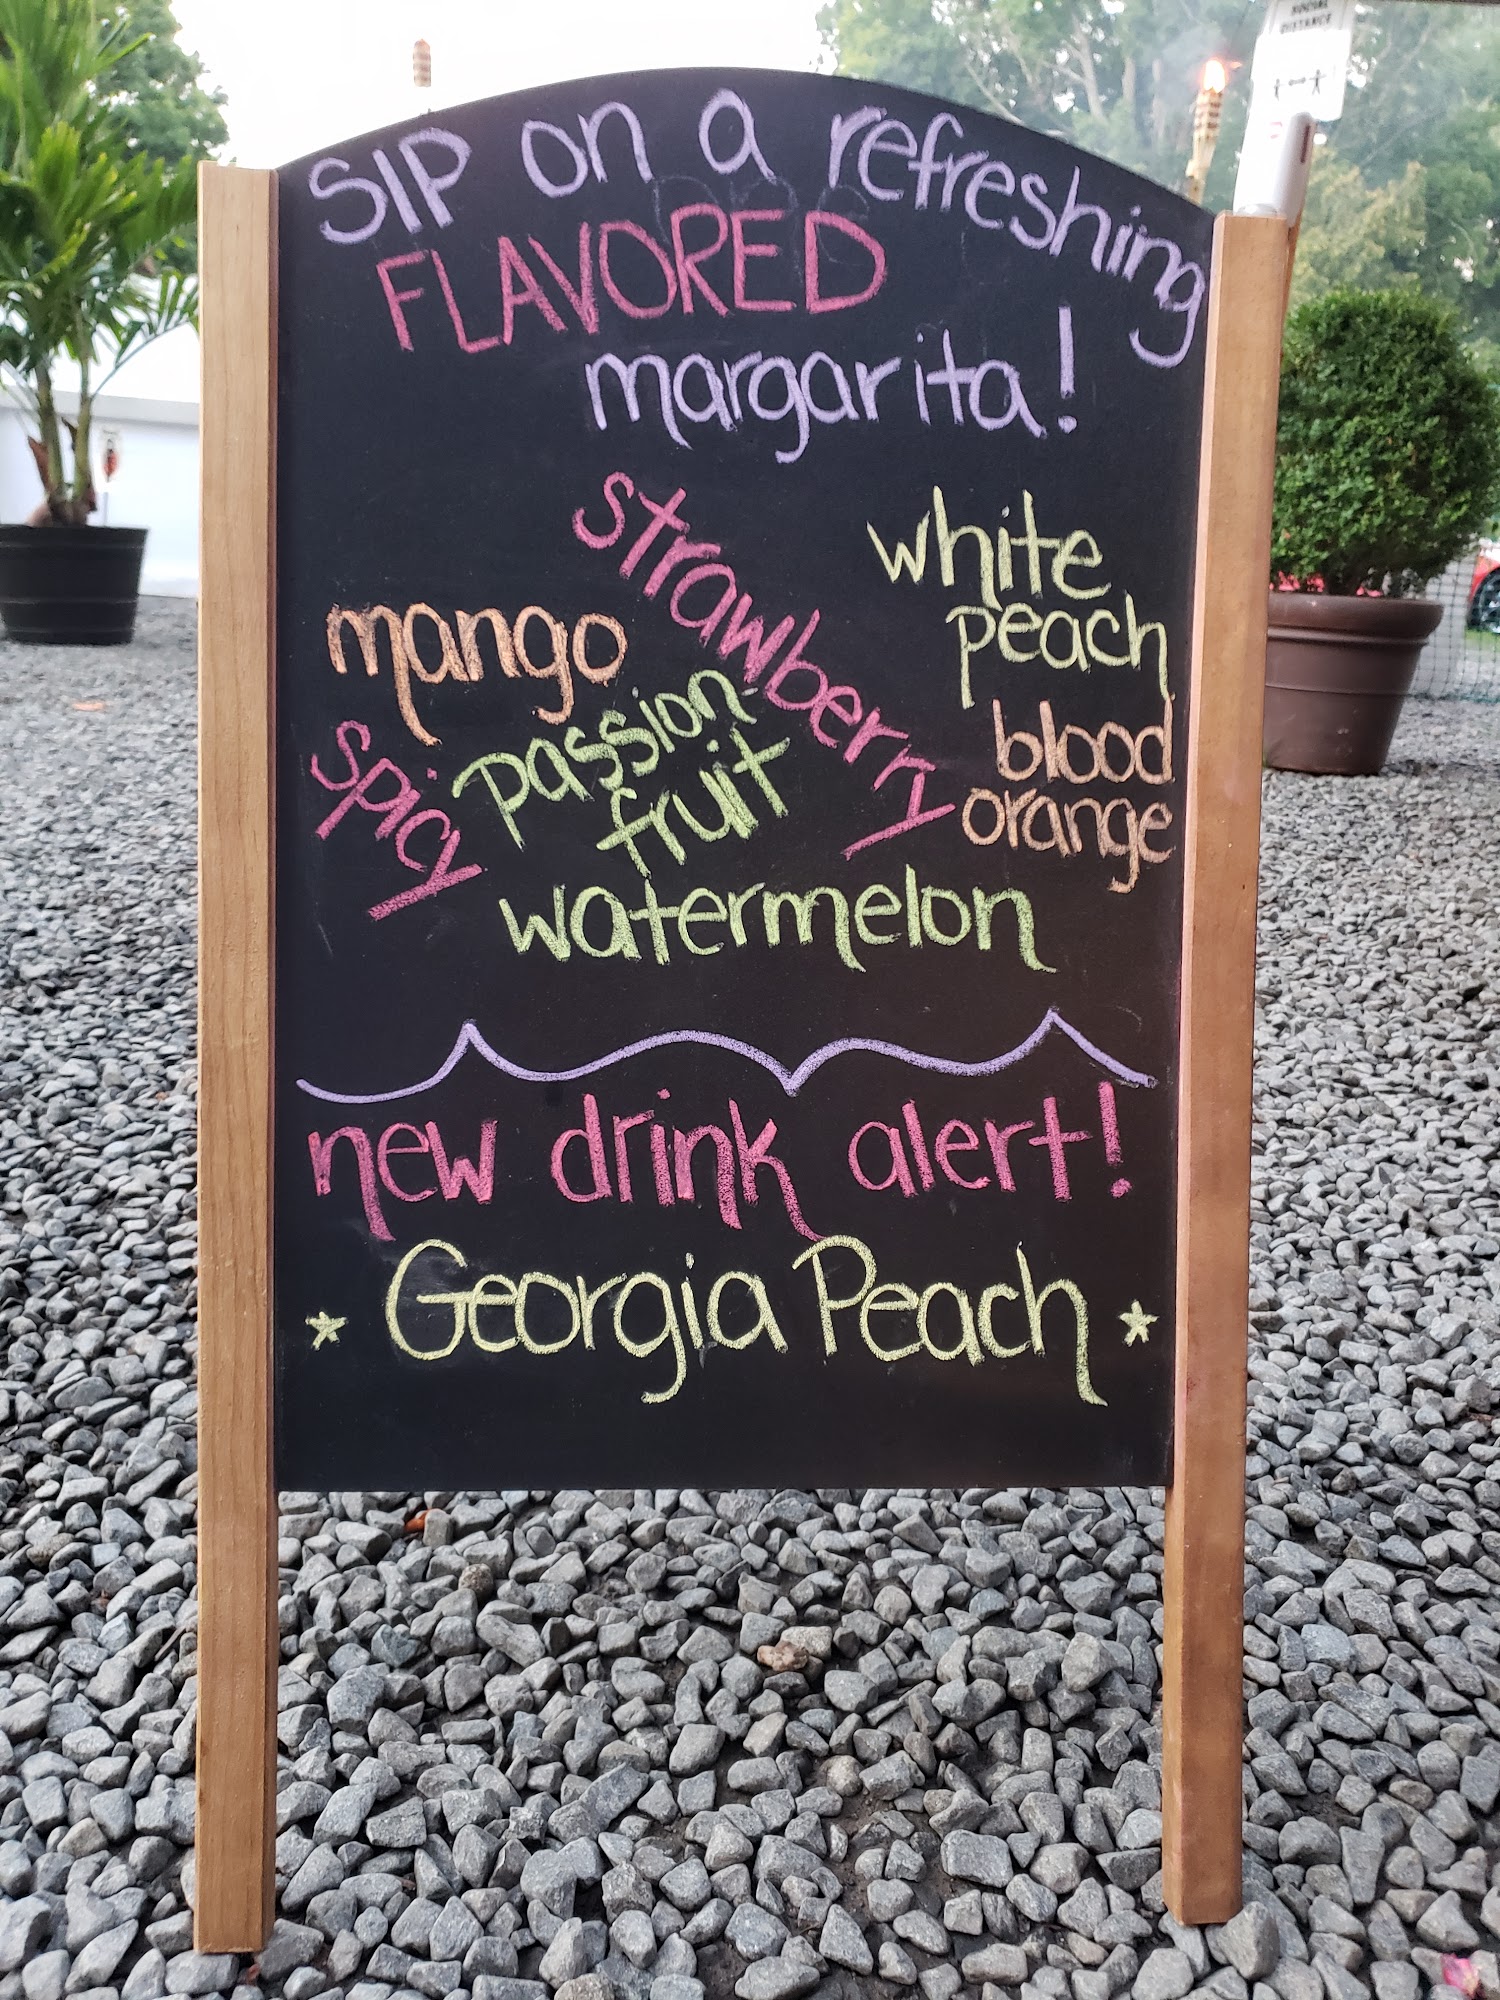 SOCIAL
DISTANCE
SIP on a refreshing
FLAVORED
margarita!
strawberry
white
peach
mango
passion-
fruit
blood
orange
spicy
watermelon
new drink alert!
Georgia Peach